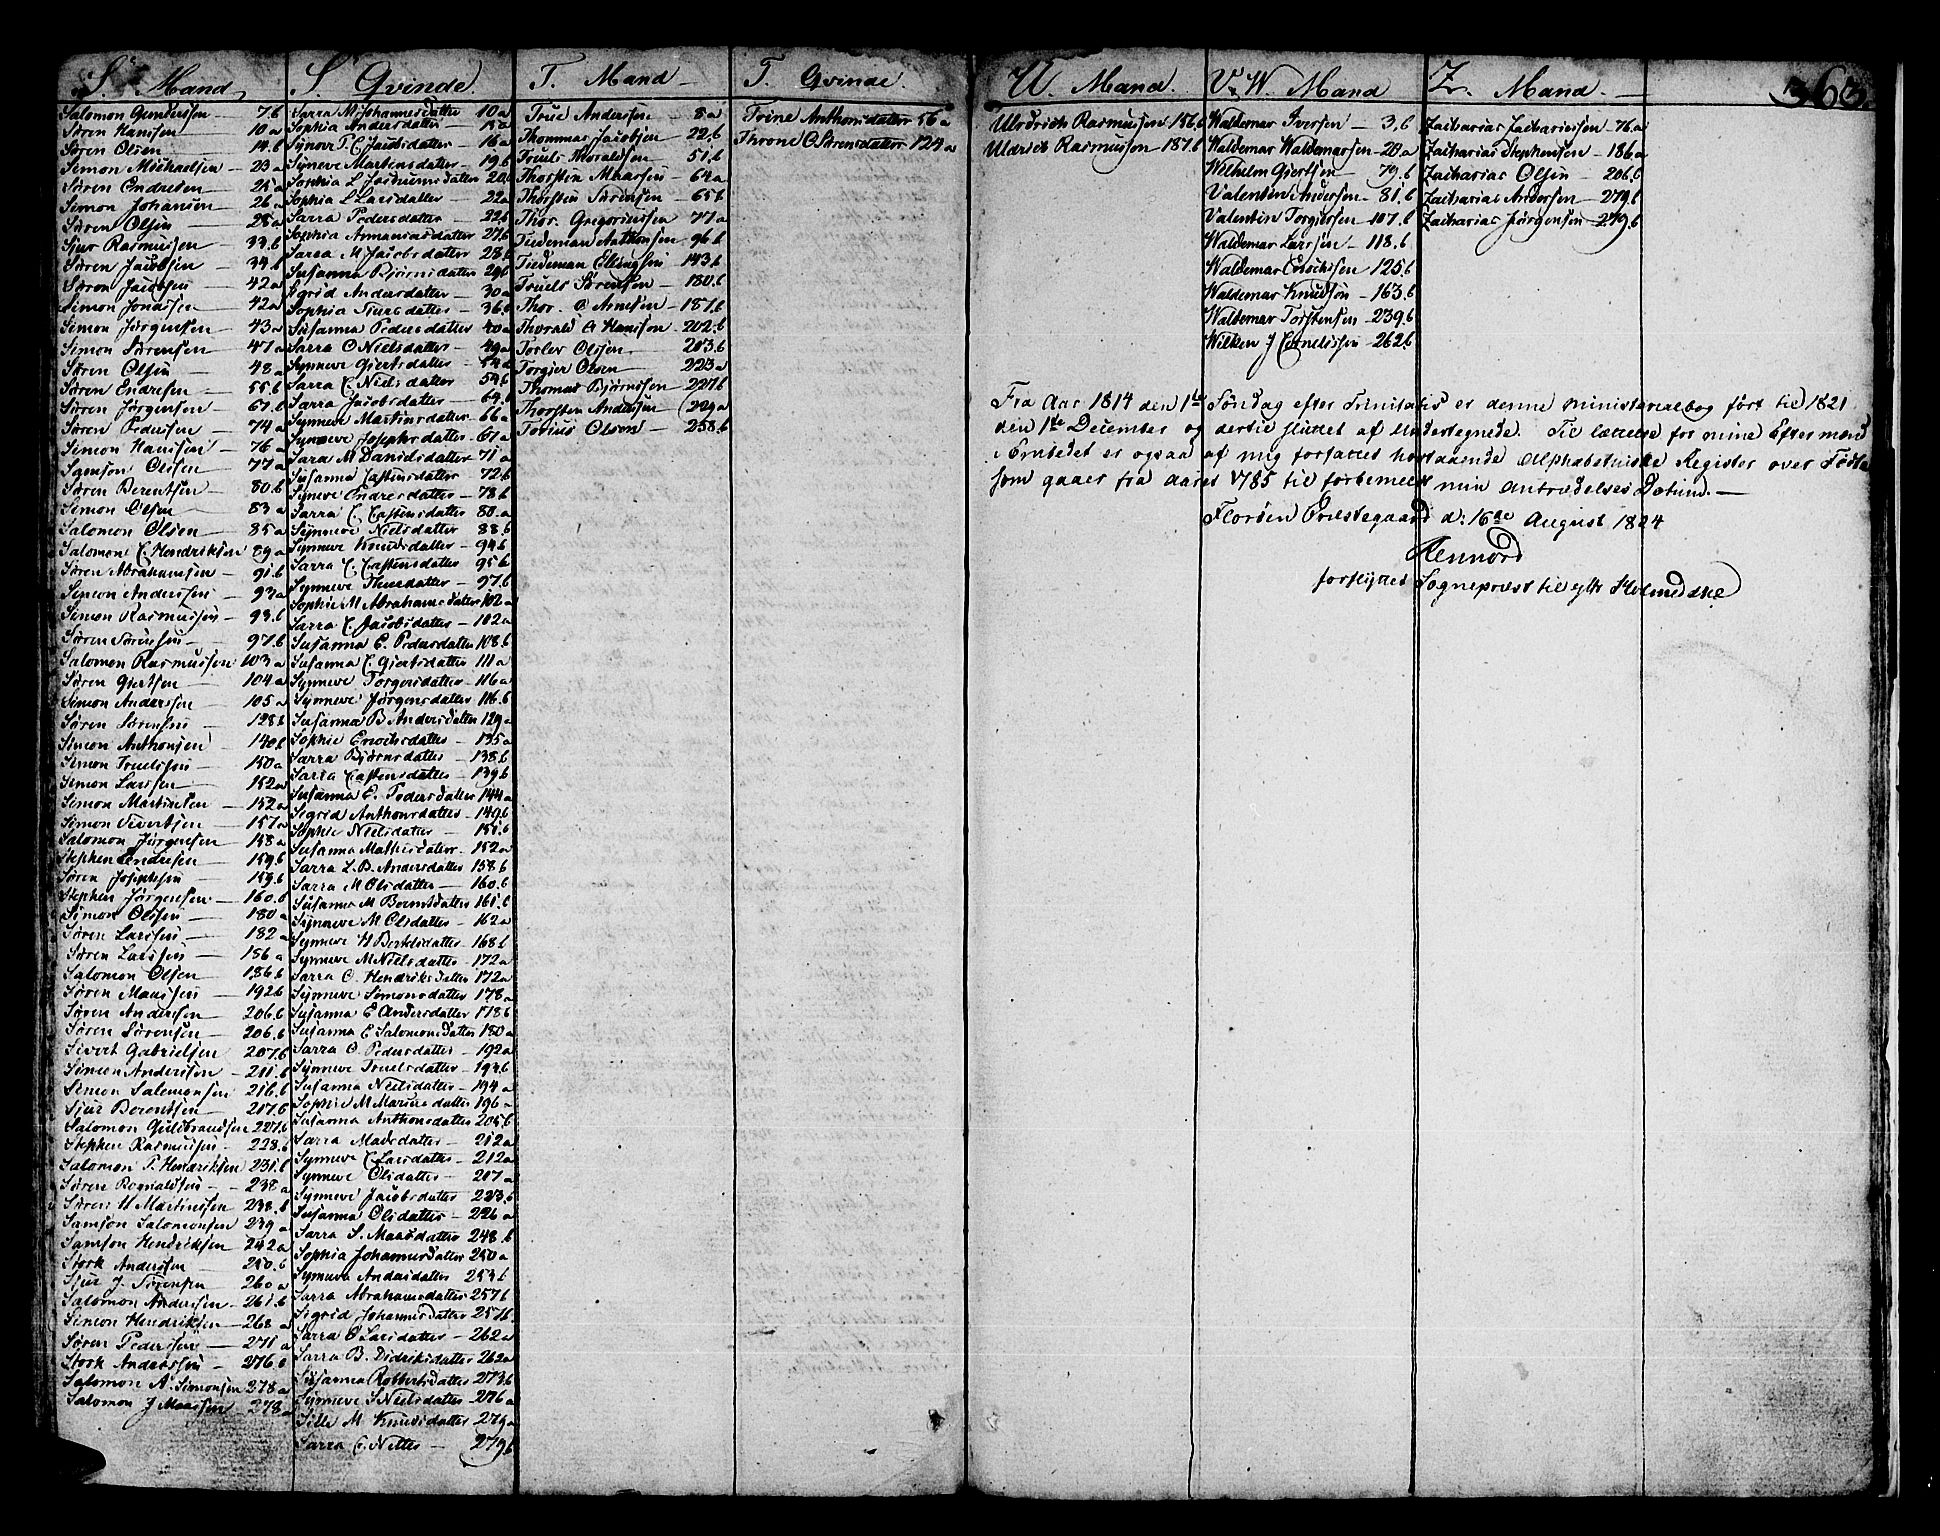 S. Mand
Salomon Gundersen 7.b
Søren Hansen 10.a
Søren Olsen 14.b
Simon Michaelsen 23.a
Søren Endresen 25.a
Simon Johansen 26.a
Søren Olsen 28.a
Sjur Rasmussen 33.b
Søren Jacobsen 34.b
Søren Jacobsen 42.a
Simon Jonassen 42.a
Simon Jørgensen 43.a
Simon Sørensen 47.a
Søren Olsen 48.a
Søren Endresen 55.b
Søren Jørgensen 67.b
Søren Pedersen 74.a
Simon Hanssen 76.a
Samson Olsen 77.a
Søren Berentsen 80.b
Simon Olsen 83.a
Salomon Olsen 85.a
Salomon C. Hendriksen 89.a
Søren Abrahamsen 91.b
Simon Andersen 93.a
Simon Rasmussen 93.b
Søren Sørensen 97.b
Salomon Rasmussen 103.a
Søren Giertsen 104.a
Simon Andersen 105.a
Søren Sørensen 128.b
Simon Anthonsen 140.b
Simon Truelssen 150.a
Simon Larssen 152.a
Simon Martinssen 152.a
Simon Sivertsen 157.a
Salomon Jørgensen 158.a
Stephen Endresen 159.b
Søren Josephsen 159.b
Stephen Jørgensen 160.b
Simon Olssen 180.a
Søren Larssen 182.a
Søren Larssen 186.a
Salomon Olsen 186.b
Søren Maassen 192.b
Søren Andersen 206.b
Søren Sørensen 206.b
Sivert Gabrielsen 207.b
Simon Andersen 211.b
Simon Salomonsen 216.b
Sjur Berentsen 217.b
Salomon Guldbrandsen 227.b
Stephen Rasmussen 228.b
Salomon P. Hendriksen 231.b
Søren Rognaldsen 238.a
Søren H Martinssen 238.b
Samson Salomonsen 239.a
Samson Hendriksen 242.a
Stork Andersen 250.b
Sjur J. Sørensen 260.a
Salomon Andersen 261.b
Simon Hendriksen 268.a
Søren Pedersen 271.a
Stork Andersen 276.b
Salomon A. Simonsen 278.a
Salomon J Maassen 278.a
S. Qvinde
Sarra M. Johannesdatter 10.a
Sophia Andersdatter 15.a
Synneve T. C. Jacobsdatter 16.a
Synneve Martensdatter 19.b
Sophia L Jochumsdatter 20.b
Sophia L Larsdatter 22.a
Sarra Pedersdatter 22.b
Sophia Annaniasdatter 27.b
Sarra M. Jacobsdatter 28.b
Susanna Bjørnsdatter 29.b
Sigrid Andersdatter 30.a
Sophia Siursdatter 36.b
Susanna Pedersdatter 40.a
Sarra O Nielsdatter 49.a
Synneve Giertsdatter 54.a
Sarra C. Nielsdatter 54.b
Sarra Jacobsdatter 64.b
Synneve Martinsdatter 66.a
Synneve Josephsdatter 67.a
Sara M Danielsdatter 71.a
Susanna Castensdatter 72.b
Synneve Endresdatter 78.b
Sarra C. Castensdatter 80.a
Synneve Nielsdatter 88.b
Synneve Knudsdatter 94.b
Sarra C. Castensdatter 95.b
Synneve Thuesdatter 97.b
Sophie M Abrahamsdatter 102.a
Sarra C. Jacobsdatter 102.a
Susanna E. Pedersdatter 108.b
Susanna C. Giertsdatter 111.a
Synneve Torgersdatter 116.a
Synneve Jørgensdatter 116.b
Susanna B Andersdatter 129.a
Sophie Enochsdatter 135.a
Sarra Bjørnsdatter 138.b
Sarra Castensdatter 139.b
Susanna E. Pedersdatter 144.a
Sigrid Anthonsdatter 149.b
Sophie Nielsdatter 151.b
Susanna Mathisdatter 152.a
Sarra L. B. Andersdatter 158.b
Sarra M Olsdatter 160.b
Susanne M Berentsdatter 161.b
Synneve M Olsdatter 162.a
Synneve H Bertelsdatter 168.b
Synneve M Nielsdatter 172.a
Sarra O. Hendriksdatter 172.a
Synneve Simonsdatter 178.a
Susanna E Andersdatter 178.b
Susanna E Salomonsdatter 180.a
Sarra O. Pedersdatter 192.a
Synneve Truelsdatter 194.b
Susanna Nielsdatter 194.a
Sophie M Mariusdatter 196.a
Susanna Anthonsdatter 205.b
Sarra Madsdatter 212.a
Synneve C Larsdatter 212.a
Synneve Olsdatter 217.a
Synneve Jacobsdatter 223.b
Susanna Olsdatter 226.a
Sarra S. Maasdatter 248.b
Sophia Johannesdatter 250.a
Synneve Andersdatter 253.b
Sarra Abrahamsdatter 257.b
Sigrid Johannesdatter 257.b
Sarra O Larsdatter 262.a
Sarra B. Didriksdatter 262.a
Susanna Robbertsdatter 273.b
Synneve S Nielsdatter 276.a
Sille M Knudsdatter 279.a
Sarra C. Nilles 279.b
T. Mand
True Andersen 8.a
Thommas Jacobsen 22.b
Truels Thoraldsen 51.b
Thorsten Maassen 64.a
Thorsten Sørensen 65.b
Thor Gregoriussen 77.a
Tiedeman Anthonsen 96.b
Tiedeman Ellingsen 143.b
Truels Sørensen 180.b
Thor O Arnesen 187.b
Thorald A Hansson 202.b
Torlev Olsen 203.b
Torgier Olsen 223.a
Thomas Bjørnssen 227.b
Thorsten Anderssen 229.a
Torius Olsen 258.b
T. Qvinde
Trine Anthonsdatter 56.a
Throne O Sørensdatter 124.a
U. Mand
Uldrich Rasmussen 156.b
Uldrich Rasmussen 187.b
V. W. Mand
Waldemar Iversen 3.b
Waldemar Waldemarsen 20.a
Wilhelm Giertsen 79.b
Valentin Andersen 81.b
Valentin Torgiersen 107.b
Waldemar Larssen 118.b
Waldemar Enochsen 125.b
Waldemar Knudsøn 163.b
Waldemar Torstensen 239.b
Wilken J Cornelissen 262.b
Z. Mand
363.
Zacharias Zachariassen 76.a
Zacharias Stephensen 186.a
Zacharias Olsen 206.b
Zacharias Andersen 279.b
Zacharias Jørgensen 279.b
Fra Aar 1814 den 1te Søndag efter Trinitatis er denne ministerialbog ført til 1821
den 1te December og dertil sluttet af Undertegnede. Til lættelse for mine Eftermænd
i Embedet er ogsaa af mig forfattet hosstaaende Alphabethiske Register over Fødte
som gaaer fra aaret 1785 til forbemeldt min Antrædelses Datum.
Florøen Præstegaard d: 16de August 1824
Rennord
forflyttet Sognepræst til ytr Holmedahl